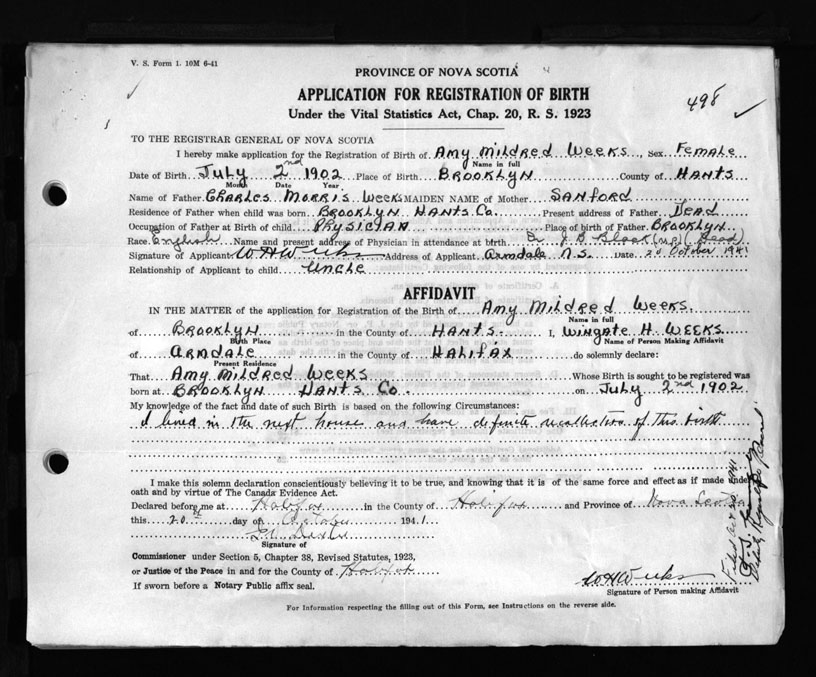 V. S. Form 1. 10M 6-41
PROVINCE OF NOVA SCOTIA
APPLICATION FOR REGISTRATION OF BIRTH
498
Under the Vital Statistics Act, Chap. 20, R. S. 1923
TO THE REGISTRAR GENERAL OF NOVA SCOTIA
I hereby make application for the Registration of Birth of Amy Mildred Weeks, Sex Female
Name in full
Date of Birth July 2nd 1902 Place of Birth Brooklyn County of Hants
Month Date Year
Name of Father Charles Morris Weeks MAIDEN NAME of Mother Sanford
Residence of Father when child was born Brooklyn Hants Co. Present address of Father Dead
Occupation of Father at Birth of child Physician Place of birth of Father Brooklyn
Race English Name and present address of Physician in attendance at birth Dr J.B. Black (M.D.) (Dead)
Signature of Applicant W H Weeks Address of Applicant Armdale N.S. Date 20 October 1941
Relationship of Applicant to child Uncle
AFFIDAVIT
IN THE MATTER of the application for Registration of the Birth of Amy Mildred Weeks.
Name in full
of Brooklyn in the County of Hants I, Wingate H. Weeks
Birth Place Name of Person Making Affidavit
of Armdale in the County of Halifax do solemnly declare:
Present Residence
That Amy Mildred Weeks Whose Birth is sought to be registered was
born at Brooklyn Hants Co. on July 2nd 1902
My knowledge of the fact and date of such Birth is based on the following Circumstances:
I lived in the next house and have definite recollection of this birth
I make this solemn declaration conscientiously believing it to be true, and knowing that it is of the same force and effect as if made under
oath and by virtue of The Canada Evidence Act.
Declared before me at Halifax in the County of Halifax and Province of Nova Scotia
this 20th day of October 1941
Signature of
Commissioner under Section 5, Chapter 38, Revised Statutes, 1923,
or Justice of the Peace in and for the County of Halifax
If sworn before a Notary Public affix seal.
W H Weeks
Signature of Person making Affidavit
For Information respecting the filling out of this Form, see Instructions on the reverse side.